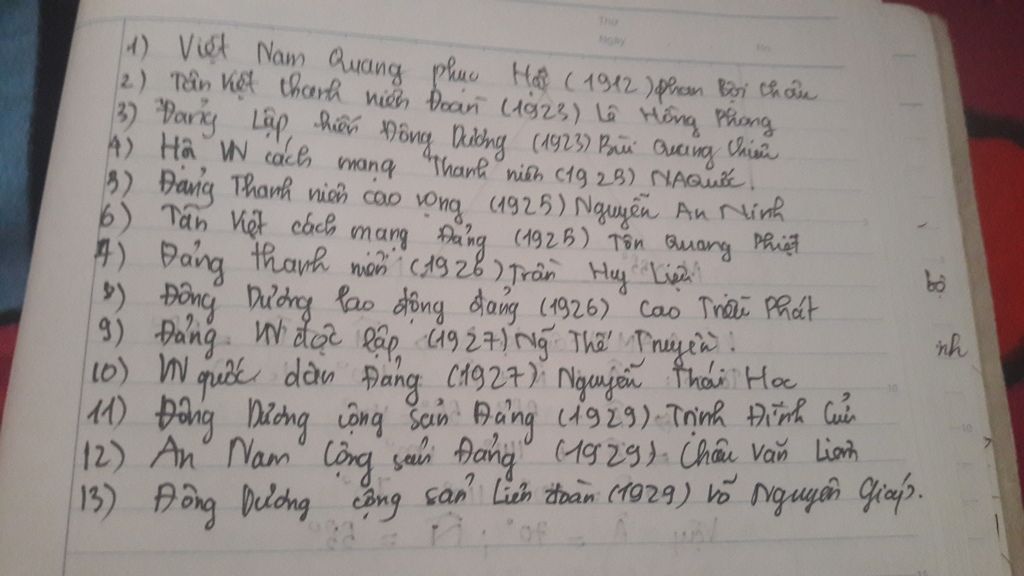 Thứ
Ngày
1) Việt Nam Quang phục Hội (1912) phan Bội Châu
2) Tân Việt thanh niên Đoàn (1923) Lê Hồng Phong
3) Đảng Lập hiến Đông Dương (1923) Bùi Quang Chiêu
4) Hội VN cách mạng Thanh niên (1925) NAQuốc.
5) Đảng Thanh niên cao vọng (1925) Nguyễn An Ninh
6) Tân Việt cách mạng Đảng (1925) Tôn Quang Phiệt
7) Đảng thanh niên (1926) Trần Huy Liệu
8) Đông Dương lao động đảng (1926) Cao Triều Phát
9) Đảng VN độc lập (1927) Ng Thế Truyền.
10) VN quốc dân Đảng (1927) Nguyễn Thái Học
11) Đông Dương cộng sản Đảng (1929) Trịnh Đình Cửu
12) An Nam Cộng sản Đảng (1929) Châu Văn Liêm
13) Đông Dương cộng sản Liên đoàn (1929) Võ Nguyên Giáp.
bộ
nh